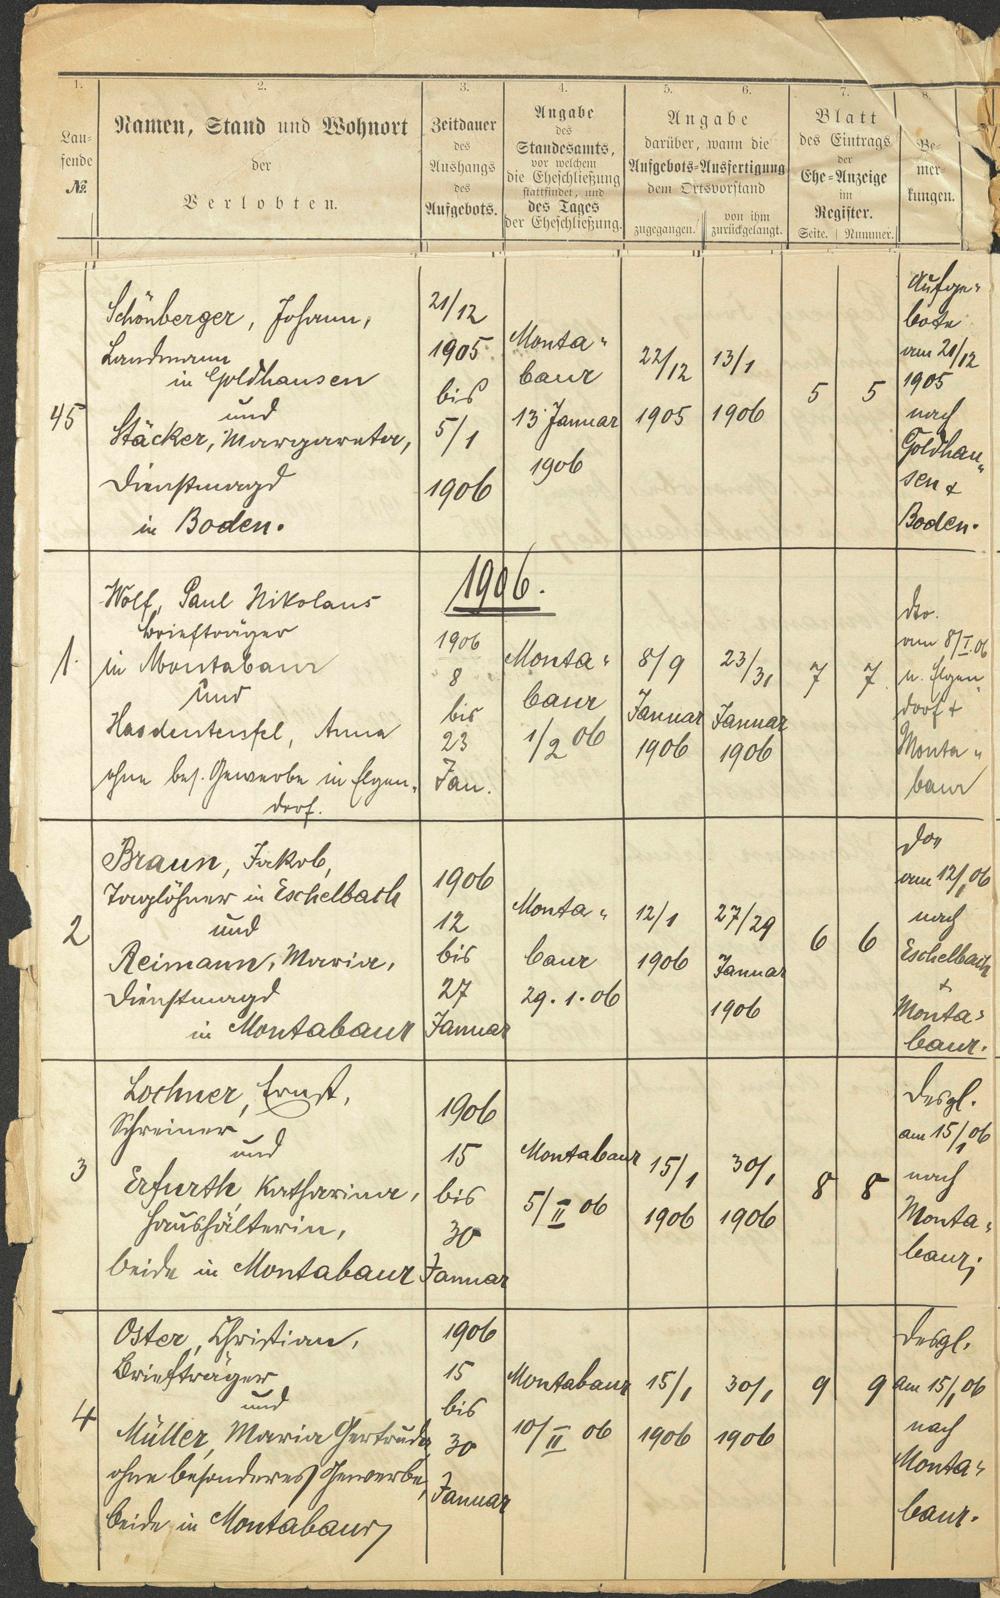 1.
Lau-
fende
№.
2.
Namen, Stand und Wohnort
der
Verlobten.
3.
Zeitdauer
des
Aushangs
des
Aufgebots.
4.
Angabe
des
Standesamts,
vor welchem
die Eheschließung
stattfindet, und
des Tages
der Eheschließung.
5. 6.
Angabe
darüber, wann die
Aufgebots-Ausfertigung
dem Ortsvorstand
zugegangen.
von ihm
zurückgelangt.
7.
Blatt
des Eintrags
der
Ehe-Anzeige
im
Register.
Seite. Nummer.
8.
Be-
mer-
kungen.
45
Schönberger, Johann,
Landmann
in Goldhausen
und
Stäcker, Margareta,
Dienstmagd
in Boden.
21/12
1905
bis
5/1
1906
Monta-
baur
13 Januar
1906
22/12
1905
13/1
1906
5
5
Aufge-
bote
am 21/12
1905
nach
Goldhau-
sen &
Boden.
1906.
1.
Wolf, Paul Nikolaus
Briefträger
in Montabaur
und
Hasdenteufel, Anna
ohne bes. Gewerbe in Elgen-
dorf.
1906
8
bis
23
Jan.
Monta-
baur
1/2 06
8/9
Januar
1906
23/31
Januar
1906
7
7.
dto.
am 8/I.06
n. Elgen
dorf &
Monta-
baur
2
Braun, Jakob,
Taglöhner in Eschelbach
und
Reimann, Maria,
Dienstmagd
in Montabaur
1906
12
bis
27
Januar
Monta-
baur
29.1.06
12/1
1906
27/29
Januar
1906
6
6
am 12/1 06
nach
Eschelbach
&
Monta-
baur.
3
Lochner, Ernst,
Schreiner
und
Erfurth Katharina,
Haushälterin,
beide in Montabaur
1906
15
bis
30
Januar
Montabaur
5/II 06
15/1
1906
30/1
1906
8
8
Desgl.
am 15/1 06
nach
Monta-
baur;
4
Oster, Christian,
Briefträger
und
Müller, Maria Gertruda
ohne besonderes Gewerbe,
beide in Montabaur
1906
15
bis
30
Januar
Montabaur
10/II 06
15/1
1906
30/1
1906
9
9
Desgl.
am 15/1 06
nach
Monta-
baur.